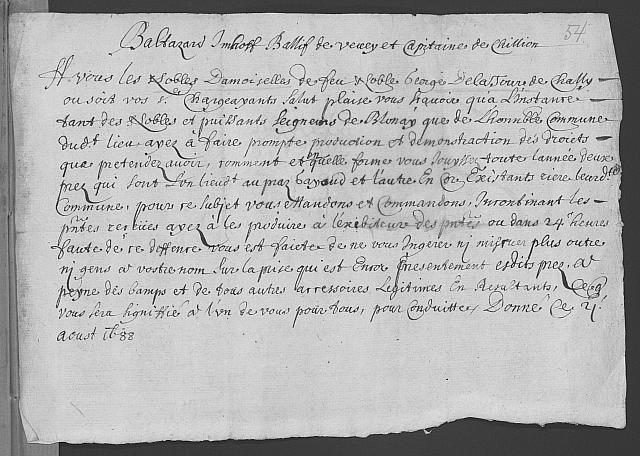 54
Baltazard Imhoff Ballif de vevey et Capitaine de Chillion
A vous les Nobles Damoiselles de feu Noble George de la Tour de Chally
ou soit vos Chargeayants Salut plaise vous sçavoir qua Linstance
tant des Nobles et puissants Seigneurs de Blonay que de Lhonnble Commune
dudt lieu ayez à faire prompte production et demonstration des droits
que pretendez avoir, comment et en quelle forme vous Jouyssez toute lannee deux
prez qui sont Lun lieudt au praz bayoud et lautre En Existants riere leurd
Commune, pour ce subject vous Mandons et Commandons, Incontinant les
pntes receües ayez à les produire à lexibiteur des pntes ou dans 24 heures
faute de ce deffence vous est faicte de ne vous Ingerer nj plus outre
nj gens a vostre nom, Sur la prise qui est Encor presentement esdits prez, A
peyne des bamps et de tous autres accessoires Legitimes En Resultants, Ce q
vous sera signiffié a lun de vous pour tous, pour conduitte, Donné Ce 2j
Aoust 1688